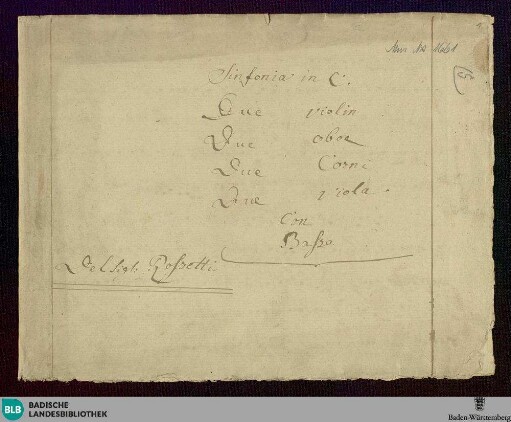 Mus. Hs.
15
Sinfonia in C.
Due violin
Due oboe
Due Corni
Due viola.
Con
Basso
Del Sig: Rossetti
BLB BADISCHE
LANDESBIBLIOTHEK
Baden-Württemberg